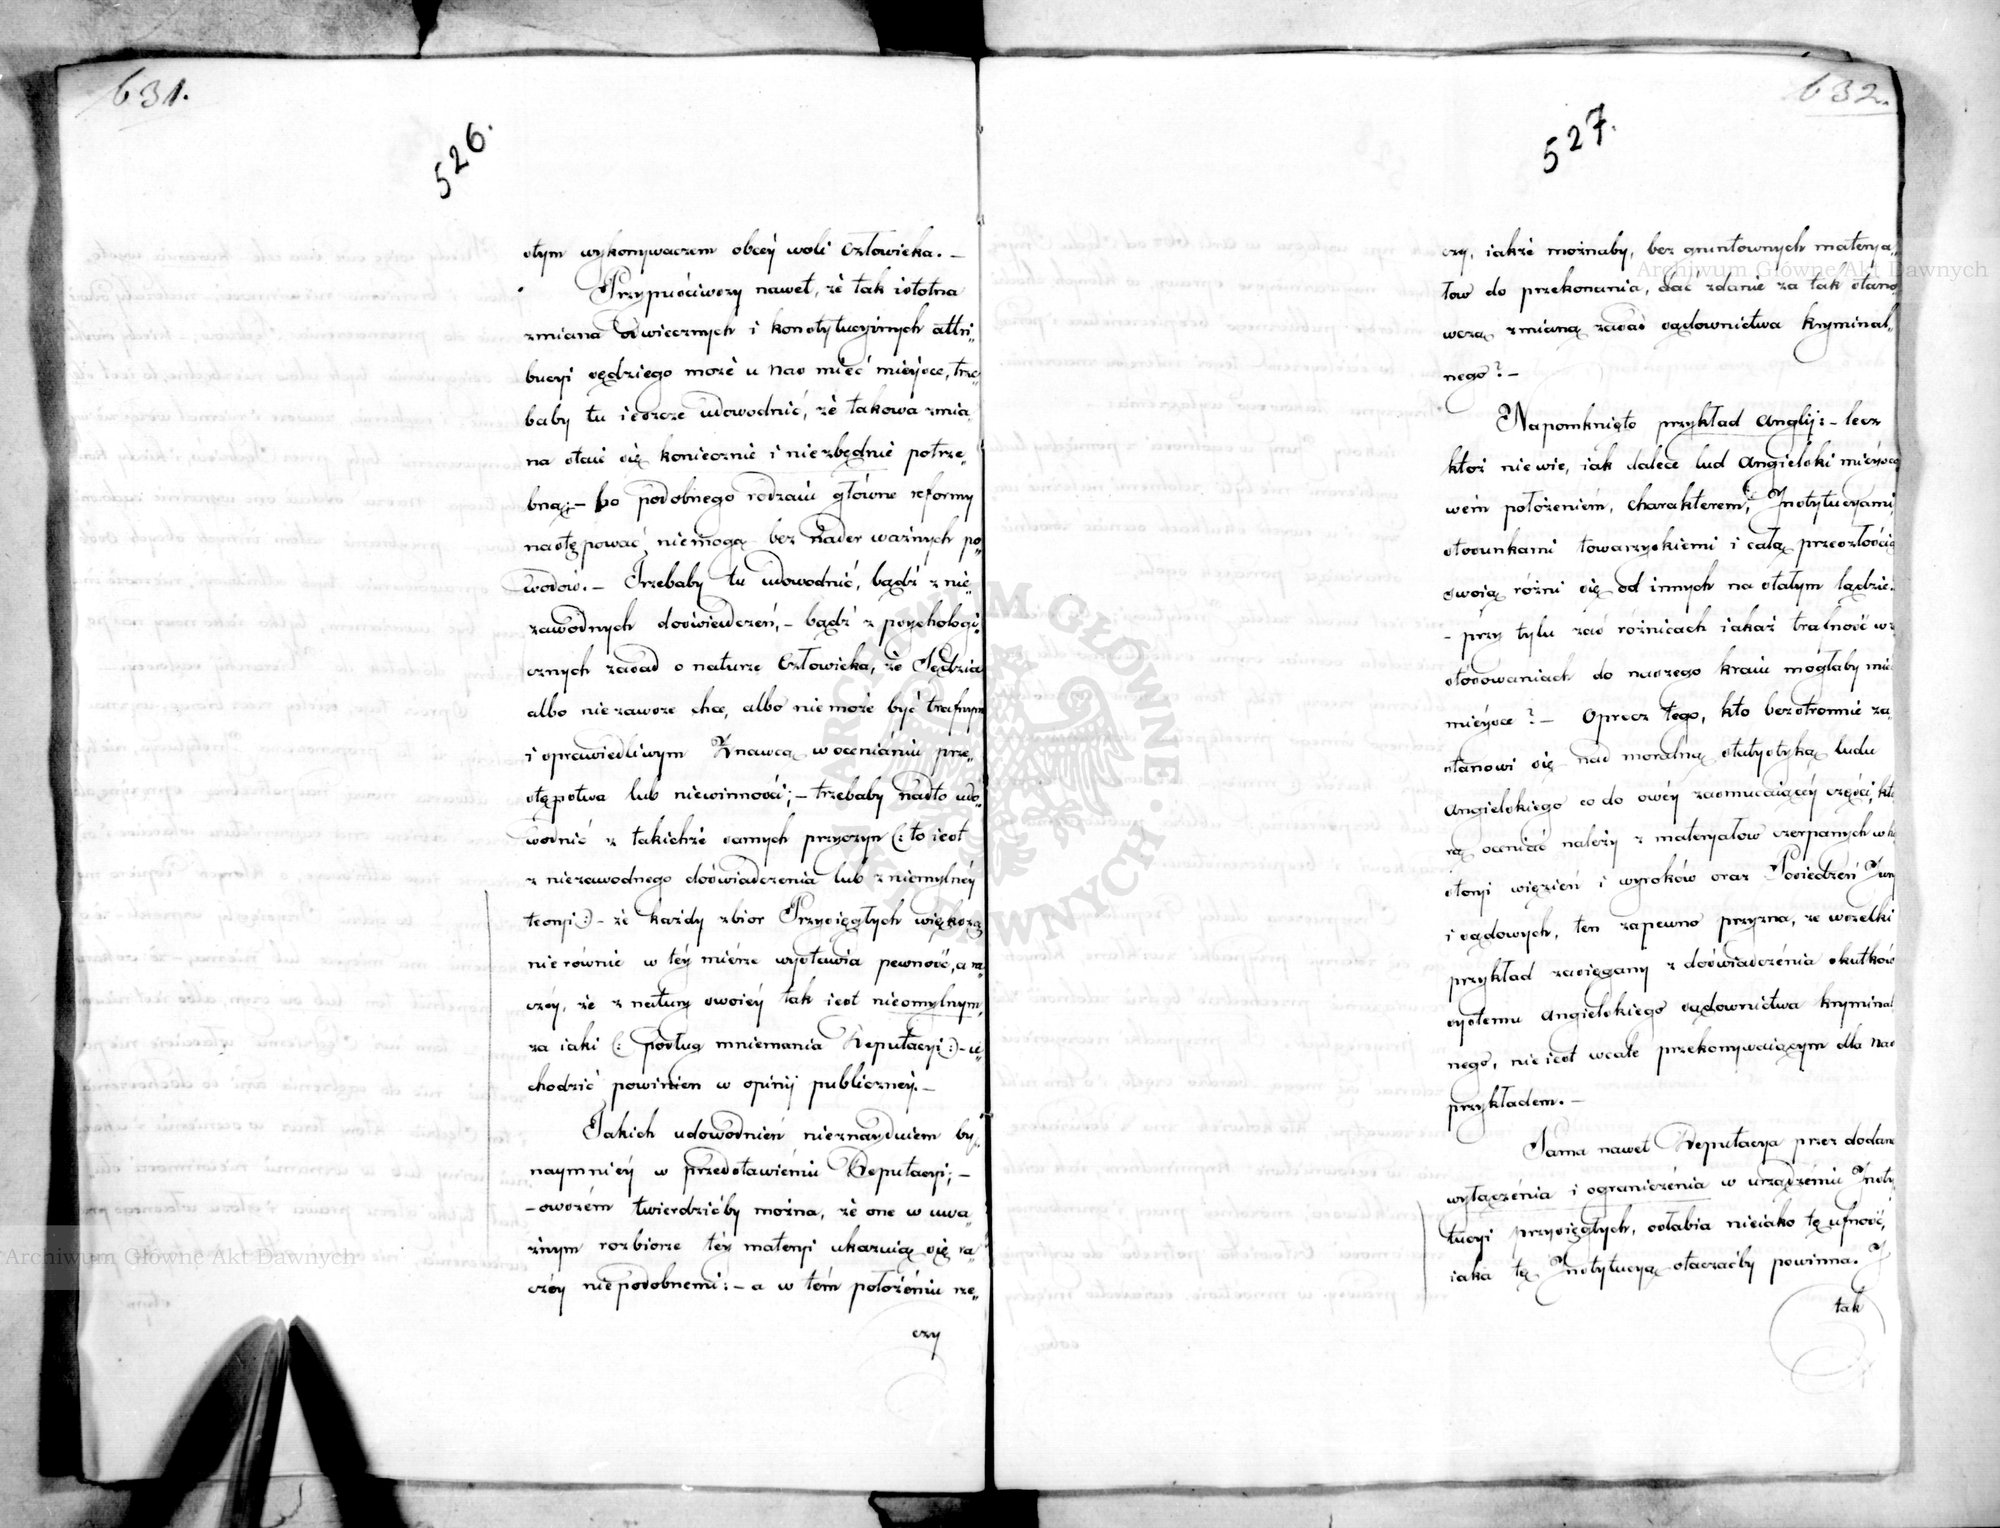 631.
526.
stym wykonywaczem obcéy woli Człowieka. –
Przypuściwszy nawet, że tak istotna
zmiana odwiecznych i konstytucyinych attri„
bucyi sędziego może u nas mieć mieysce, trze„
baby tu ieszcze udowodnić, że takowa zmia„
na staie się koniecznie i niezbędnie potrze„
bną; – bo podobnego rodzaiu główne reformy
następować niemogą bez nader ważnych po„
wodów. – Trzebaby tu udowodnić, bądź z nie„
zawodnych doświadczeń, – bądź z psychologi„
cznych zasad o naturze Człowieka, że Sędzia
albo niezawsze chce, albo niemoże być trafnym
i sprawiedliwym Znawcą w ocenianiu prze„
stępstwa lub niewinności; – trzebaby nadto udo„
wodnić z takichże samych przyczyn (: to iest
z niezawodnego doświadczenia lub z niemylnéy
teoryi :) – że każdy zbior Przysięgłych większą
nierównie w téy mierze wystawia pewność, a ra„
czéy, że z natury swoiéy tak iest nieomylnym,
za iaki (: podług mniemania Deputacyi :) – u„
chodzić powinien w opinii publicznéy. –
Takich udowodnień nieznayduiem by„
naymniéy w przedstawieniu Deputacyi; –
– owszem twierdzićby można, że one w uwa„
żnym rozbiorze téy materyi ukazuią się ra„
czéy niepodobnemi: – a w tém położéniu rze„
czy
632.
527.
czy, iakże możnaby, bez gruntownych materya„
łow do przekonania, dać zdanie za tak stano
wczą zmianą zasad sądownictwa kryminal„
nego? –
Napomknięto przykład Anglii: – lecz
któż niewie, iak dalece lud Angielski mieysco
wém położeniém, charakterem, Instytucyami,
stosunkami towarzyskiemi i całą przeszłością
swoią różni się od innych na stałym lądzie.
– przy tylu zaś różnicach iakaż trafność w
stosowaniach do naszego kraiu mogłaby
mieysce? – Oprocz tego, kto bezstronnie za„
stanowi się nad moralną statystyką ludu
Angielskiego co do owéy zasmucaiącéy części,
rą oceniać należy z materyałow czerpanych w
storyi więzień i wyroków oraz Posiedzeń
i sądowych, ten zapewno przyzna, ze wszelki
przykład zasięgany z doświadczénia skutków
systemu Angielskiego sądownictwa kryminal
nego, nieiest wcale przekonywaiącym dla nas
przykładem. –
Sama nawet Deputacya przez dodane
wyłączénia i ograniczénia w urządzéniu Insty
tucyi przysięgłych, osłabia nieiako tę ufność,
iaka tę Instytucyą otaczaćby powinna. I
tak
Archiwum Główne Akt Dawnych
Archiwum Główne Akt Dawnych
ARCHIWUM GŁÓWNE AKT DAWNYCH